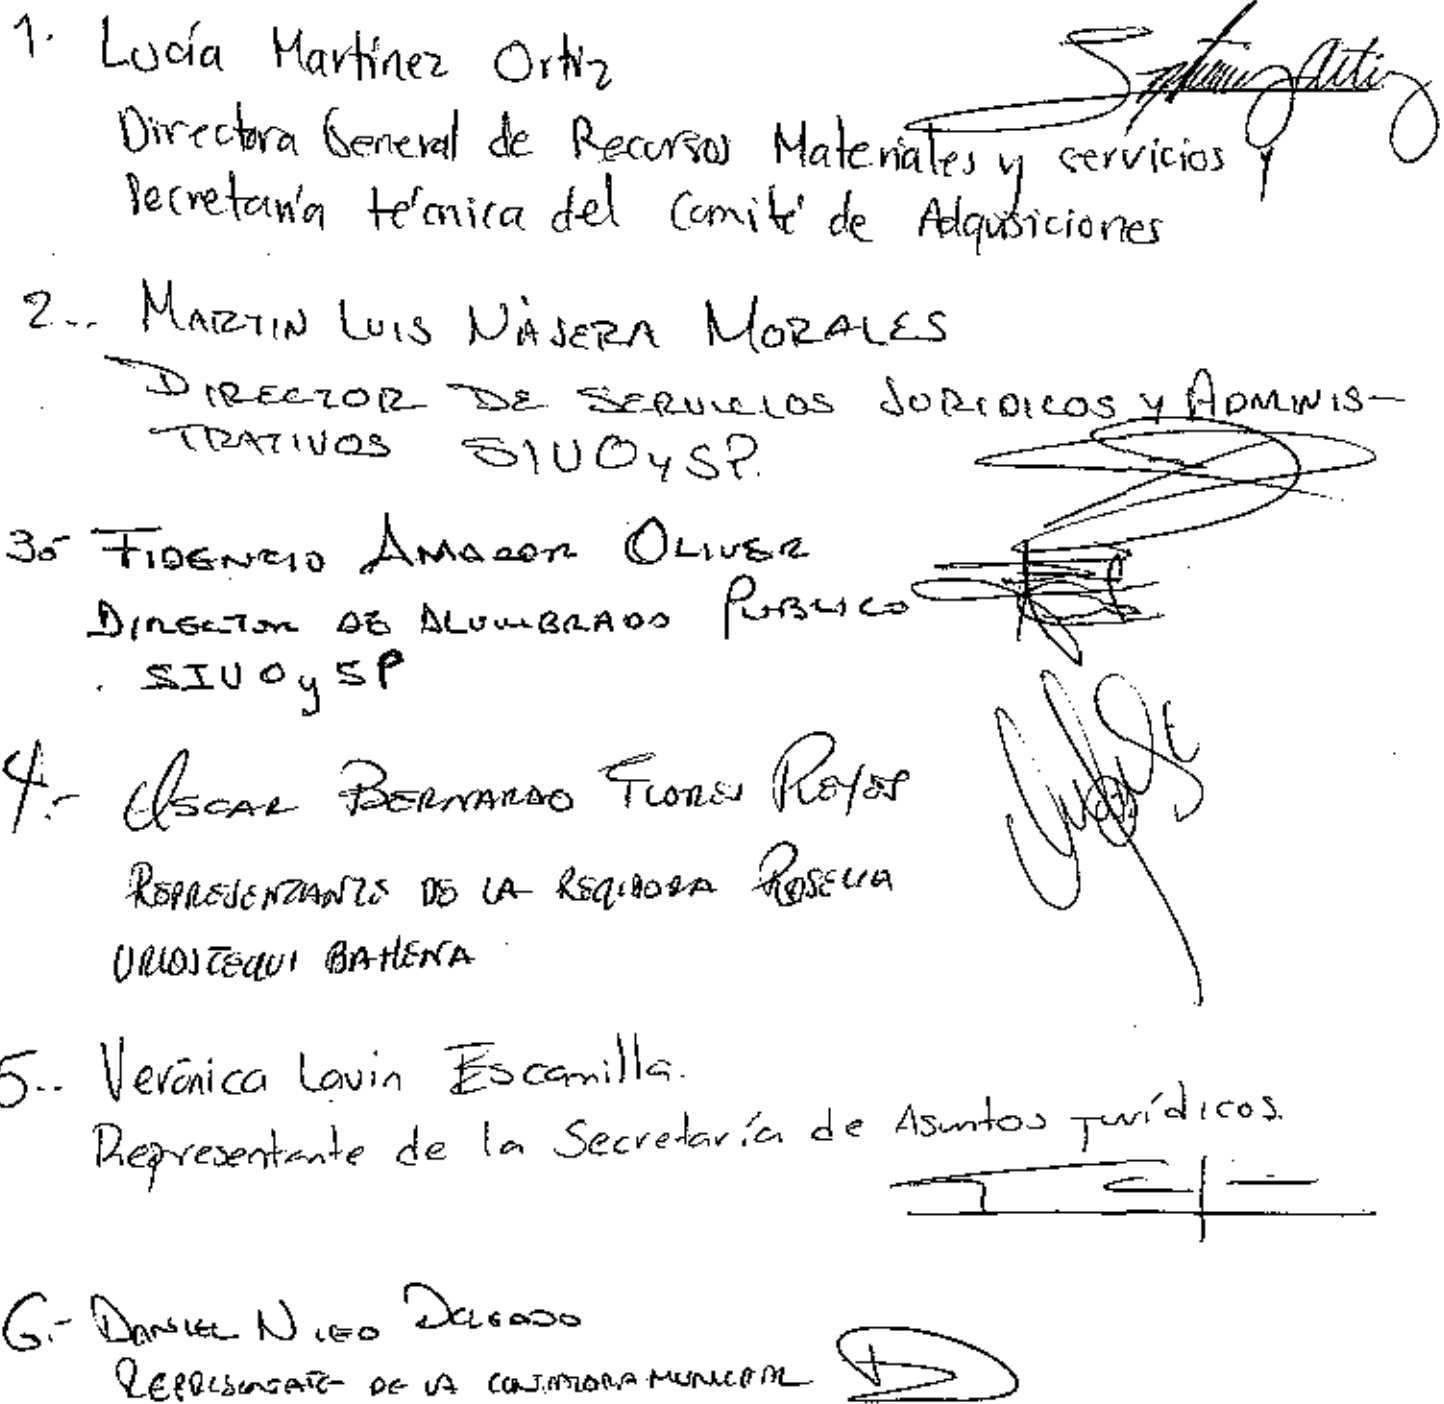 1. Lucía Martínez Ortiz
Directora General de Recursos Materiales y servicios y
Secretaría técnica del Comité de Adquisiciones
2.- MARTIN LUIS NÁJERA MORALES
DIRECTOR DE SERVICIOS JURIDICOS y ADMINIS-
TRATIVOS SIUOySP.
3.- FIDENCIO AMADOR OLIVER
DIRECTOR DE ALUMBRADO PUBLICO
SIUOySP
4.- OSCAR BERNARDO FLORES REYES
REPRESENTANTE DE LA REGIDORA ROSELIA
URIOSTEGUI BAHENA
5.- Verónica Lavin Escamilla.
Representante de la Secretaría de Asuntos Jurídicos.
6.- DANIEL DELGADO
REPRESENTATE DE LA MUNICIPAL